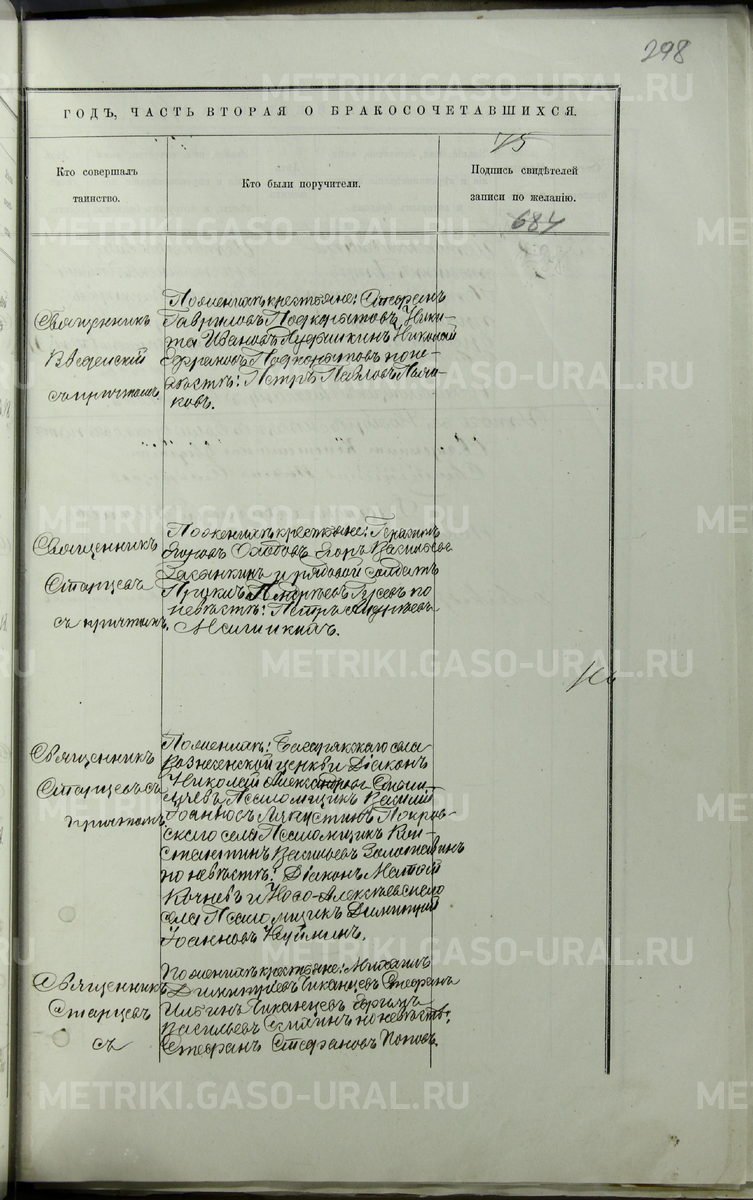 298
ГОДЪ, ЧАСТЬ ВТОРАЯ О БРАКОСОЧЕТАВШИХСЯ.
Кто совершалъ
таинство.
Кто были поручители.
Подпись свидѣтелей
записи по желанію.
684
Священникъ
Введенскій
съ причтомъ
По женихѣ крестьяне: Стефанъ
Гавриловъ Подкорытовъ, Ники-
та Ивановъ Николай
Подкорытовъ по не-
вѣстѣ: Петръ Павловъ
ковъ.
Священникъ
Старцевъ
съ причтомъ.
По женихѣ крестьяне:
Егоровъ Егоръ Васильевъ
и рядовой солдатъ
Гусевъ по
невѣстѣ: Петръ Андреевъ
Священникъ
Старцевъ съ
причтомъ
По женихѣ: Багарякскаго села
Вознесенской церкви Діаконъ
Николай Александровъ
Псаломщикъ Василій
Іоанновъ Ляпустинъ Покров-
скаго села Псаломщикъ Кон-
стантинъ Васильевъ
по невѣстѣ: Діаконъ
Кочневъ и Ново-Алексѣевскаго
села Псаломщикъ Димитрій
Іоанновъ Неуйминъ.
Священникъ
Старцевъ
съ
По женихѣ крестьяне: Михаилъ
Димитріевъ Чиканцевъ Стефанъ
Ильинъ Чиканцевъ
Васильевъ по невѣстѣ:
Стефанъ Стефановъ Поповъ.
METRIKI.GASO-URAL.RU